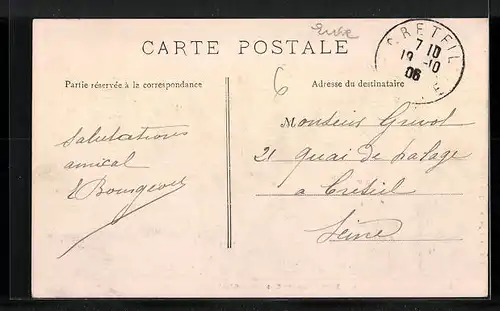 CARTE POSTALE
CRETEIL
7 10
19-10
06
6
Partie réservée à la correspondance
Adresse du destinataire
Salutations
amical
E Bourgeois
Monsieur
21 quai de halage
a Creteil
Seine